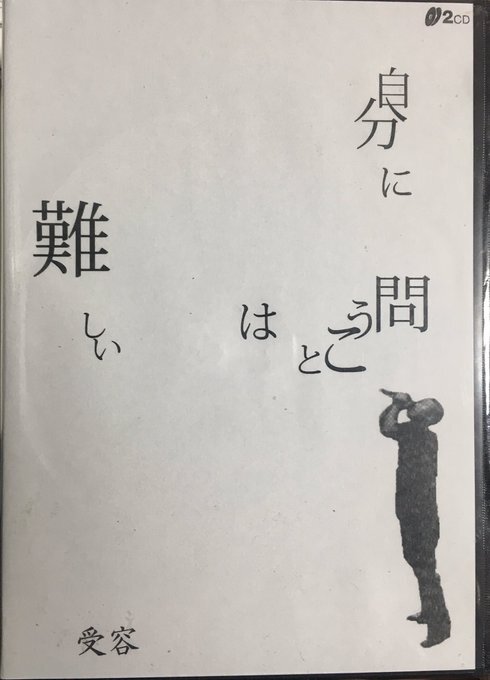 2CD
自分に
問うこと
は
難しい
受容